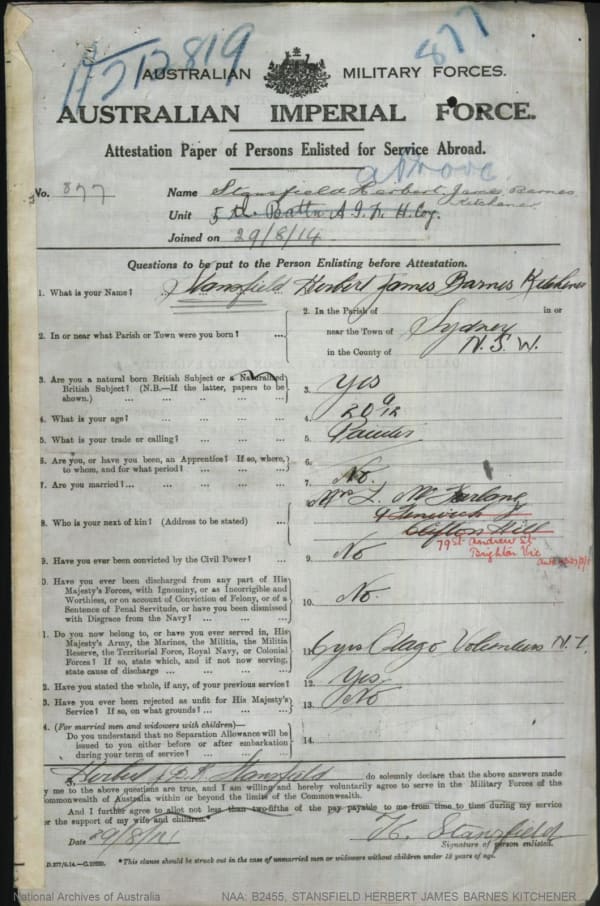 11212819
877
AUSTRALIAN MILITARY FORCES.
AUSTRALIAN IMPERIAL FORCE.
Attestation Paper of Persons Enlisted for Service Abroad.
above
No. 877 Name Stansfield Herbert James Barnes
Kitchener
Unit 5th Battn A.I.F. H. Coy.
Joined on 29/8/14
Questions to be put to the Person Enlisting before Attestation.
1. What is your Name? ... Stansfield Herbert James Barnes Kitchener
2. In or near what Parish or Town were you born? ... 2. In the Parish of in or
near the Town of Sydney
in the County of N.S.W.
3. Are you a natural born British Subject or a Naturalised
British Subject? (N.B.—If the latter, papers to be
shown.) ... 3. Yes
4. What is your age? ... 4. 20 9/12
5. What is your trade or calling? ... 5.
6. Are you, or have you been, an Apprentice? If so, where,
to whom, and for what period? ... 6.
7. Are you married? ... 7. No.
8. Who is your next of kin? (Address to be stated) ... 8. Mrs L. McFarlane
9 Fenwick St
Clifton Hill
79 St. Andrew St
Brighton Vic
9. Have you ever been convicted by the Civil Power? ... 9. No
0. Have you ever been discharged from any part of His
Majesty's Forces, with Ignominy, or as Incorrigible and
Worthless, or on account of Conviction of Felony, or of a
Sentence of Penal Servitude, or have you been dismissed
with Disgrace from the Navy? ... 10. No.
1. Do you now belong to, or have you ever served in, His
Majesty's Army, the Marines, the Militia, the Militia
Reserve, the Territorial Force, Royal Navy, or Colonial
Forces? If so, state which, and if not now serving,
state cause of discharge ... 11. 6 yrs Otago Volunteers N.Z.
2. Have you stated the whole, if any, of your previous service? 12. Yes.
3. Have you ever been rejected as unfit for His Majesty's
Service? If so, on what grounds? ... 13. No
4. (For married men and widowers with children)—
Do you understand that no Separation Allowance will be
issued to you either before or after embarkation
during your term of service? ... 14.
I, Herbert J.B.K. Stansfield do solemnly declare that the above answers made
by me to the above questions are true, and I am willing and hereby voluntarily agree to serve in the Military Forces of the
Commonwealth of Australia within or beyond the limits of the Commonwealth.
And I further agree to allot not less than two-fifths of the pay payable to me from time to time during my service
for the support of my wife and children.*
Date 29/8/14 H. Stansfield
Signature of person enlisted.
*This clause should be struck out in the case of unmarried men or widowers without children under 18 years of age.
National Archives of Australia NAA: B2455, STANSFIELD HERBERT JAMES BARNES KITCHENER